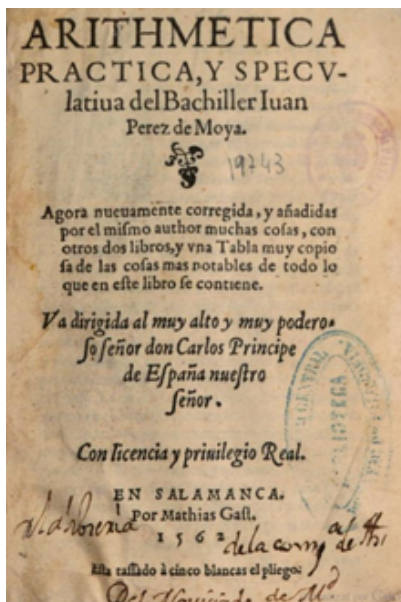 ARITHMETICA
PRACTICA, Y SPECV-
latiua del Bachiller Iuan
Perez de Moya.
19743
Agora nueuamente corregida, y añadidas
por el mismo author muchas cosas, con
otros dos libros, y vna Tabla muy copio
sa de las cosas mas notables de todo lo
que en este libro se contiene.
Va dirigida al muy alto y muy podero-
so señor don Carlos Principe
de España nuestro
señor.
Con licencia y priuilegio Real.
EN SALAMANCA.
Por Mathias Gast.
1562
de la
Esta tassado à cinco blancas el pliego.
Del Nouiciado de M